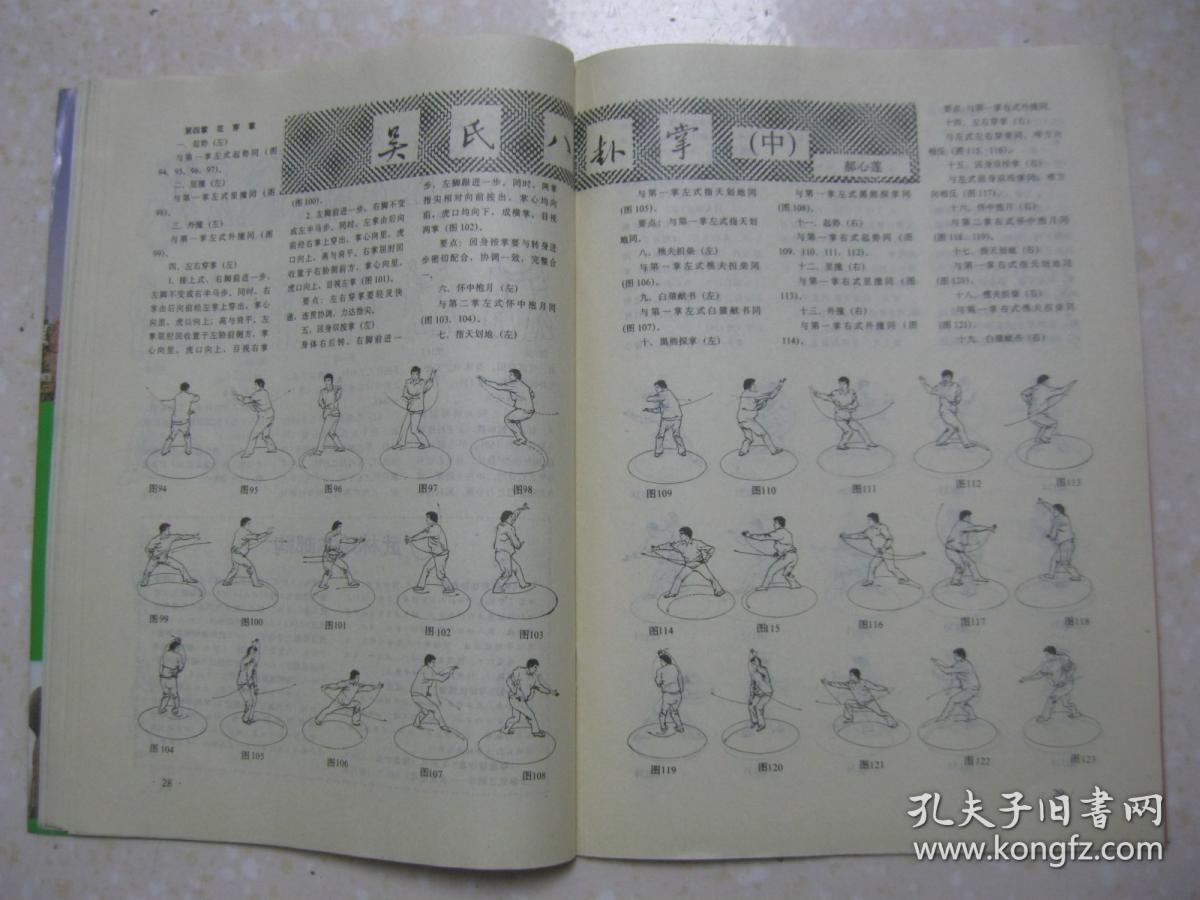 吴氏八卦掌(中)
郝心莲
第四掌 花穿掌
一、起势(左)
与第一掌左式起势同(图
94、95、96、97)。
二、里撞(左)
与第一掌左式里撞同(图
98)。
三、外撞(左)
与第一掌左式外撞同(图
99)。
四、左右穿掌(左)
1. 接上式,右脚前进一步,
左脚不变成右半马步。同时,右
掌由后向前经左掌上穿出,掌心
向里,虎口向上,高与肩平,左
掌屈肘回收置于左胁前侧方,掌
心向里,虎口向上,目视右掌
(图100)。
2. 左脚前进一步,右脚不变
成左半马步。同时,左掌由后向
前经右掌上穿出,掌心向里,虎
口向上,高与肩平,右掌屈肘回
收置于右胁侧前方,掌心向里,
虎口向上,目视左掌(图101)。
要点:左右穿掌要轻灵快
速,连贯协调,力达指尖。
五、回身双按掌(左)
身体右后转,右脚前进一
步,左脚跟进一步。同时,两掌
指尖相对向前按出,掌心均向
前,虎口均向下,成横掌,目视
两掌(图102)。
要点:回身按掌要与转身进
步密切配合,协调一致,完整合
一。
六、怀中抱月(左)
与第二掌左式怀中抱月同
(图103、104)。
七、指天划地(左)
与第一掌左式指天划地同
(图105)。
要点:与第一掌左式指天划
地同。
八、樵夫担柴(左)
与第一掌左式樵夫担柴同
(图106)。
九、白猿献书(左)
与第一掌左式白猿献书同
(图107)。
十、黑熊探掌(左)
与第一掌左式黑熊探掌同
(图108)。
十一、起势(右)
与第一掌右式起势同(图
109、110、111、112)。
十二、里撞(右)
与第一掌右式里撞同(图
113)。
十三、外撞(右)
与第一掌右式外撞同(图
114)。
要点:与第一掌右式外撞同。
十四、左右穿掌(右)
与左式左右穿掌同,唯方向
相反(图115、116)。
十五、回身双按掌(右)
与左式回身双按掌同,唯方
向相反(图117)。
十六、怀中抱月(右)
与第二掌右式怀中抱月同
(图118、119)。
十七、指天划地(右)
与第一掌右式指天划地同
(图120)。
十八、樵夫担柴(右)
与第一掌右式樵夫担柴同
(图121)。
十九、白猿献书(右)
图94 图95 图96 图97 图98
图99 图100 图101 图102 图103
图104 图105 图106 图107 图108
· 28 ·
图109 图110 图111 图112 图113
图114 图115 图116 图117 图118
图119 图120 图121 图122 图123
孔夫子旧书网
www.kongfz.com